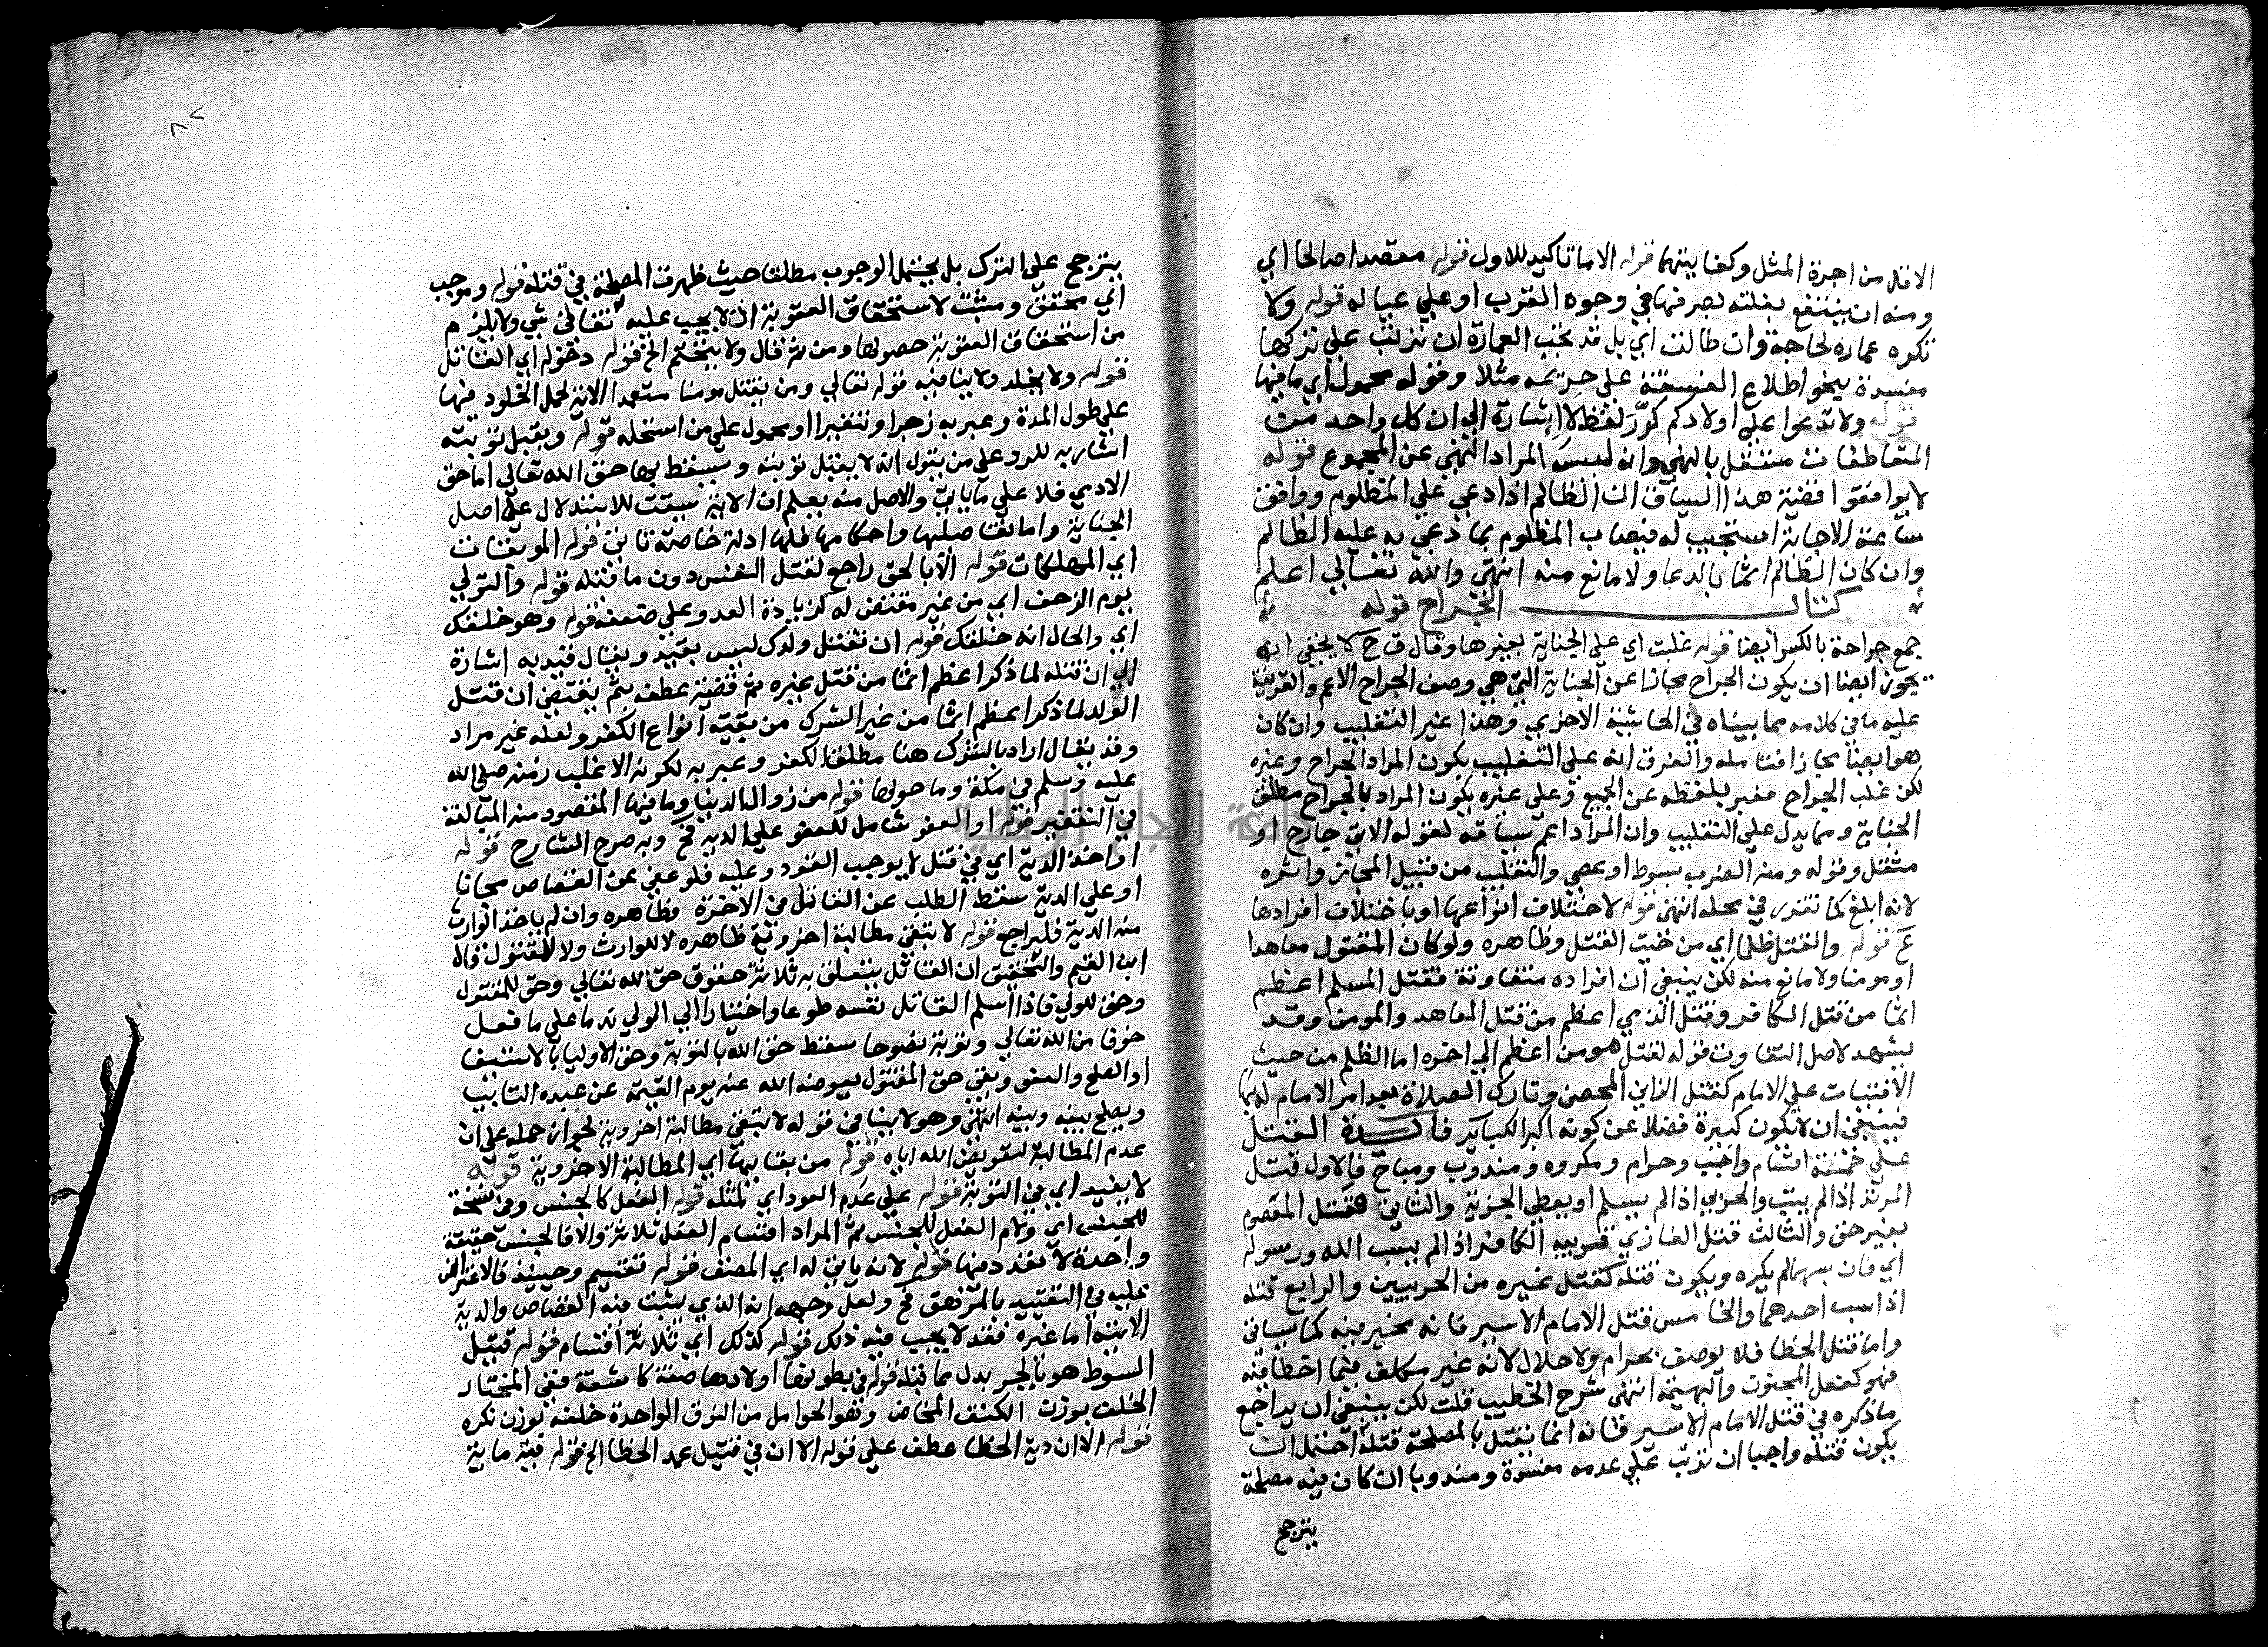 الاقل من اجرة المثل وكفايتهما قوله الا ما تاكيد للاول قوله مقصدا صالحا اي
ومنه ان ينتفع بغلته بصرفها في وجوه القرب او علي عياله قوله ولا
تكره عمارة لحاجة وان طالت اي بل قد تجب العمارة ان ترتب علي تركها
مفسدة بنحو اطلاع الفسقة علي حريمه مثلا وقوله محمول اي ما فيها
قوله ولا تدعوا علي اولادكم كرر لفظ لا اشارة الي ان كل واحد من
المتعاطفات مستقل بالنهي وانه ليس المراد النهي عن المجموع قوله
لا يوافقوا قضية هذا السياق ان الظالم اذا دعي علي المظلوم ووافق
ساعة الاجابة استجيب له فيصاب المظلوم بما دعي به عليه الظالم
وان كان الظالم اثما بالدعا ولا مانع منه انتهي والله تعالي اعلم
كتاب الجراح قوله
جمع جراحة بالكسر ايضا قوله غلبت اي علي الجناية بغيرها وقال ق ح لا يخفي انه
يجوز ايضا ان يكون الجراح مجازا عن الجناية التي هي وصف الجراح الاعم والقرينة
عليه ما في كلامه مما بيناه في الحاشية الاخري وهذا غير التغليب وان كان
هو ايضا مجازا فتامله والفرق انه علي التغليب يكون المراد الجراح وغيره
لكن غلب الجراح فعبر بلفظه عن الجميع وعلي غيره يكون المراد بالجراح مطلق
الجناية ومما يدل علي التغليب وان المراد اعم سياقه لقوله الاتي جارح او
مثقل وقوله ومنه الضرب بسوط او عصي والتغليب من قبيل المجاز واثره
لانه ابلغ كما تقرر في محله انتهي قوله لاختلاف انواعها او باختلاف افرادها
ع قوله والقتل ظلما اي من حيث القتل وظاهره ولو كان المقتول معاهدا
او مومنا ولا مانع منه لكن ينبغي ان افراده متفاوتة فقتل المسلم اعظم
اثما من قتل الكافر وقتل الذمي اعظم من قتل المعاهد والمومن وقد
يشهد لاصل التفاوت قوله لقتل مومن اعظم الي اخره اما الظلم من حيث
الافتيات علي الامام كقتل الزاني المحصن وتارك الصلاة بعد امر الامام له بها
فينبغي ان لا يكون كبيرة فضلا عن كونه اكبر الكباير فايدة القتل
علي خمسة اقسام واجب وحرام ومكروه ومندوب ومباح فالاول قتل
المرتد اذا لم يتب والحربي اذا لم يسلم او يعطي الجزية والثاني قتل المعصوم
بغير حق والثالث قتل الغازي قريبه الكافر اذا لم يسب الله ورسوله
اي فان سبهما لم يكره ويكون قتله كقتل غيره من الحربيين والرابع قتله
اذا سب احدهما والخامس قتل الامام الاسير فانه مخير فيه كما سياتي
واما قتل الخطا فلا يوصف بحرام ولا حلال لانه غير مكلف فيما اخطا فيه
فهو كفعل المجنون والبهيمة انتهي شرح الخطيب قلت لكن ينبغي ان يراجع
ما ذكره في قتل الامام الاسير فانه انما يقتل بالمصلحة قتله احتمل ان
يكون قتله واجبا ان ترتب علي عدمه مفسدة ومندوبا ان كان فيه مصلحة
يترجح
٨٢
يترجح علي الترك بل يحتمل الوجوب مطلقا حيث ظهرت المصلحة في قتله قوله وموجب
اي محقق ومثبت لاستحقاق العقوبة اذ لا يجب عليه تعالي شي ولا يلزم
من استحقاق العقوبة حصولها ومن ثم قال ولا يتحتم الخ قوله دخوله اي القاتل
قوله ولا يخلد ولا ينافيه قوله تعالي ومن يقتل مومنا متعمدا الاية لحمل الخلود فيها
علي طول المدة وعبر به زجرا وتنفيرا او محمول علي من استحله قوله ويقبل توبته
اشار به للرد علي من يقول انه لا يقبل توبته ويسقط بها حق الله تعالي اما حق
الادمي فلا علي ما ياتي والاصل منه يعلم ان الاية سيقت للاستدلال علي اصل
الجناية واما تفاصيلها واحكامها فلها ادلة خاصة تاتي قوله الموبقات
اي المهلكات قوله الا بالحق راجع لقتل النفس دون ما قبله قوله والتولي
يوم الزحف اي من غير مقتض له كزيادة العدو علي ضعفه قوله وهو خلقك
اي والحال انه خلقك قوله ان تقتل ولدك ليس بقيد ويقال قيد به اشارة
الي ان قتله لما ذكر اعظم اثما من قتل غيره ثم قضية عطف بثم يقتضي ان قتل
الولد لما ذكر اعظم اثما من غير الشرك من بقية انواع الكفر ولعله غير مراد
وقد يقال اراد بالشرك هنا مطلق الكفر وعبر به لكونه الاغلب زمنه صلي الله
عليه وسلم في مكة وما حولها قوله من زوال الدنيا وما فيها المقصود منه المبالغة
في التنفير قوله او العفو شامل للعفو علي الدية فح وبه صرح الشارح قوله
او اخذ الدية اي في قتل لا يوجب القود وعليه فلو عفي عن القصاص مجانا
او علي الدية سقط الطلب عن القاتل في الاخرة وظاهره وان لم ياخذ الوارث
منه الدية فليراجع قوله لا تبقي مطالبة اخروية ظاهره لا للوارث ولا للمقتول قال
ابن القيم والتحقيق ان القاتل يتعلق به ثلاثة حقوق حق الله تعالي وحق للمقتول
وحق للولي فاذا اسلم القاتل نفسه طوعا واختيارا الي الولي ندما علي ما فعل
خوفا من الله تعالي وتوبة نصوحا سقط حق الله بالتوبة وحق الاوليا بالاستيفا
او الصلح والعفو وبقي حق المقتول يعوضه الله عنه يوم القيمة عن عبده التايب
ويصلح بينه وبينه انتهي وهو لا ينافي قوله لا تبقي مطالبة اخروية لجواز حمله علي ان
عدم المطالبة لتعويض الله اياه قوله من بقايها اي المطالبة الاخروية قوله
لا يفيد اي في التوبة قوله علي عدم العود اي لمثله قوله الفعل كالجنس وفي نسخة
للجنس اي ولام الفعل للجنس ثم المراد اقسام الفعل ثلاثة والا فالجنس حقيقة
واحدة لا تعدد فيها قوله لانه ياتي له اي المصنف قوله تقسيم وحينئذ فالاعتراض
عليه في التقييد بالمزهق فح ولعل وجهه انه الذي يثبت فيه القصاص والدية
الاتية اما غيره فقد لا يجب فيه ذلك قوله كذلك اي ثلاثة اقسام قوله قتيل
السوط هو بالجر بدل مما قبله قوله في بطونها اولادها صفة كاشفة ففي المختار
الخلف بوزن الكتف المخاض وهو الحوامل من النوق الواحدة خلفة بوزن نكره
قوله الا ان دية الخطا عطف علي قوله الا ان في قتيل عمد الخطا الخ قوله فيه ماية